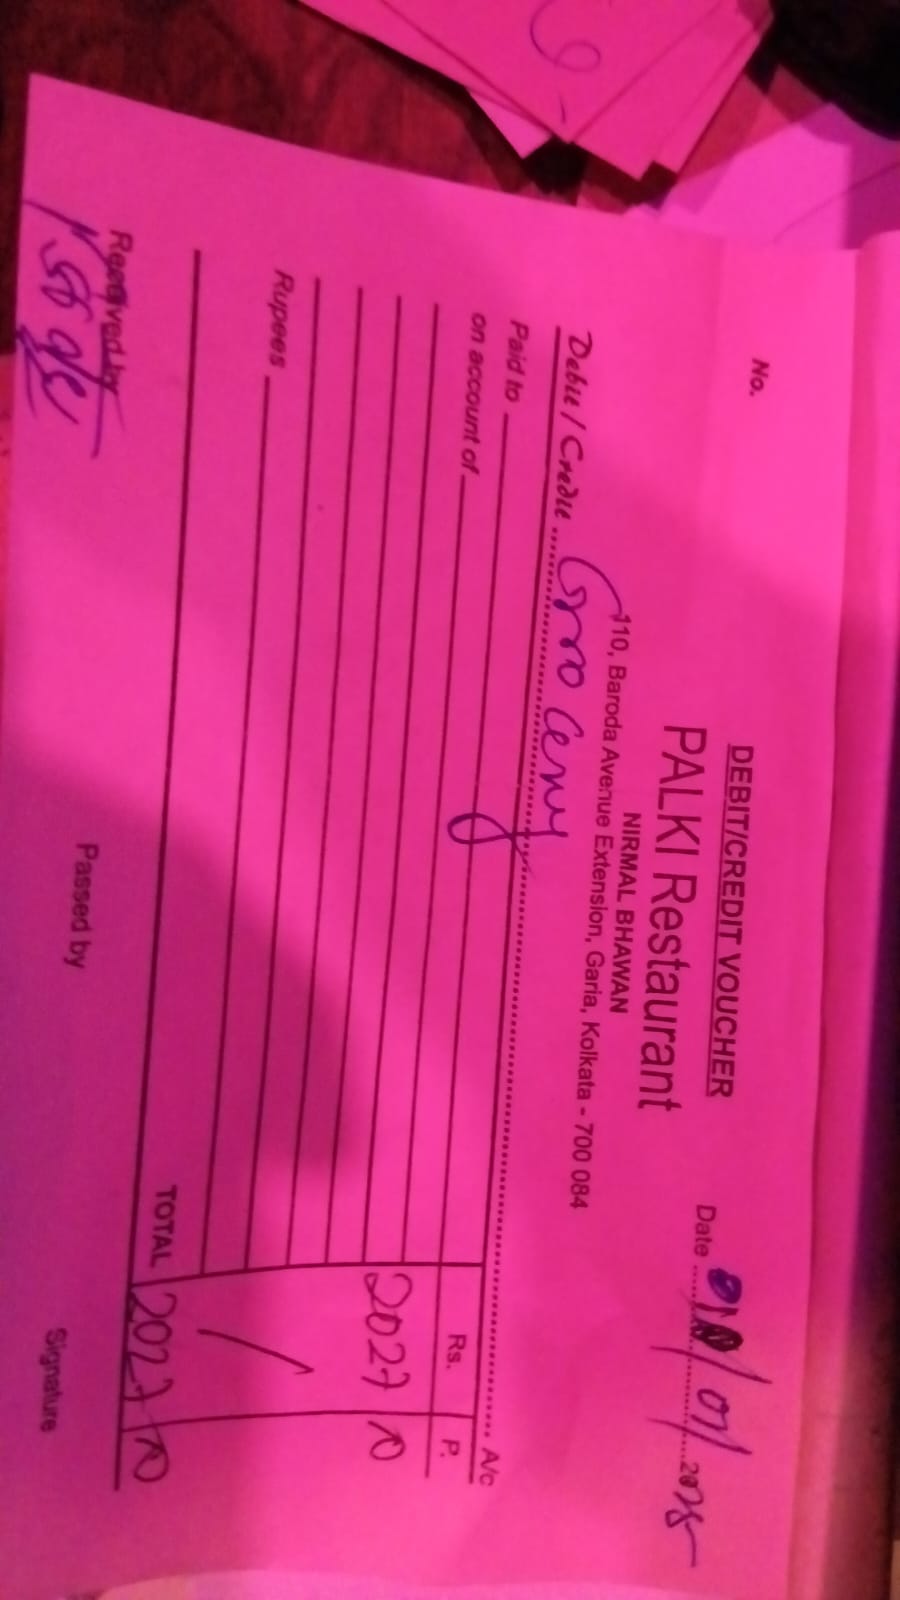 No.
DEBIT/CREDIT VOUCHER
PALKI Restaurant
NIRMAL BHAWAN
110, Baroda Avenue Extension, Garia, Kolkata - 700 084
Date / 01 / 2025
Debit / Credit Gro Cery A/c
Paid to
on account of Rs. P.
2027 10
Rupees
TOTAL 2027 10
Received by Passed by Signature